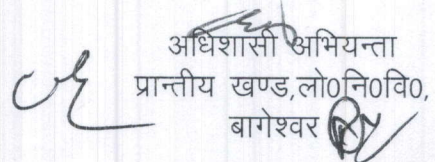 अधिशासी अभियन्ता
प्रान्तीय खण्ड,लो0नि0वि0,
बागेश्वर